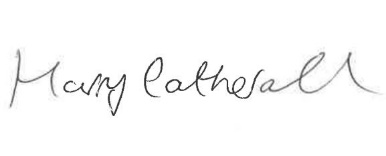 Mary Catherall